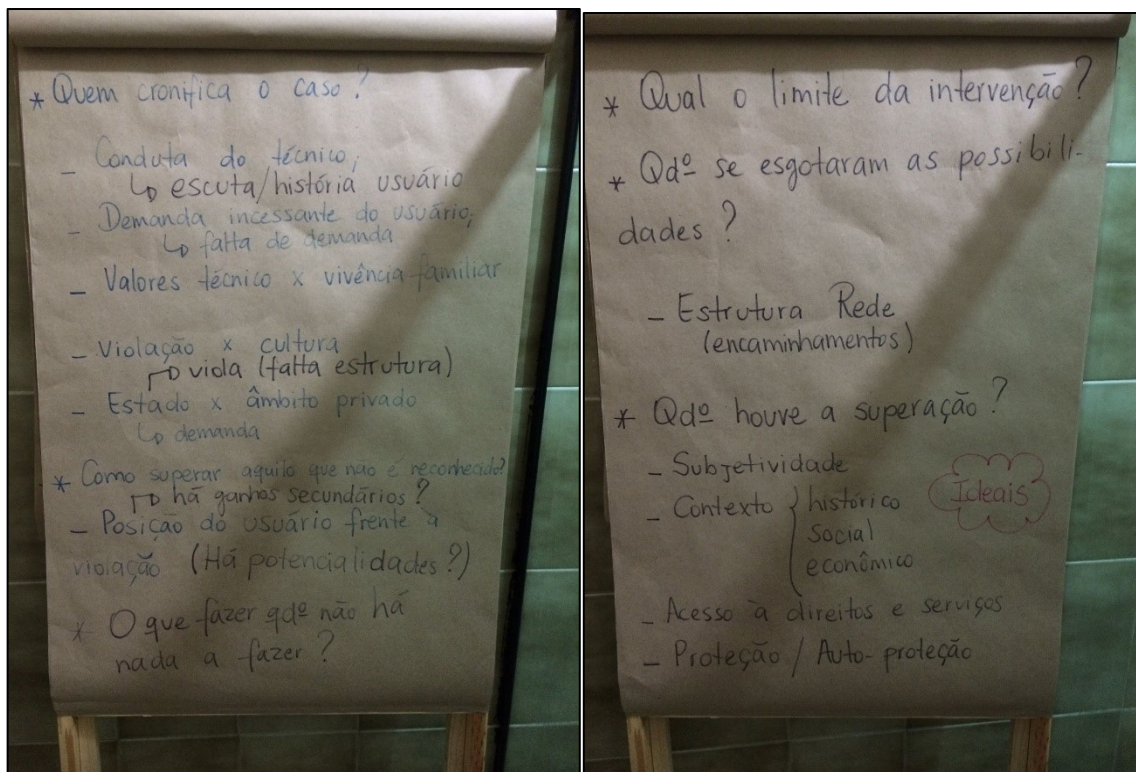 * Quem cronifica o caso?
– Conduta do técnico;
↳ escuta/história usuário
– Demanda incessante do usuário;
↳ falta de demanda
– Valores técnico x vivência familiar
– Violação x cultura
↱ viola (falta estrutura)
– Estado x âmbito privado
↳ demanda
* Como superar aquilo que não é reconhecido?
↱ há ganhos secundários?
– Posição do usuário frente à
violação (Há potencialidades?)
* O que fazer qdº não há
nada a fazer?
* Qual o limite da intervenção?
* Qdº se esgotaram as possibili-
dades?
– Estrutura Rede
(encaminhamentos)
* Qdº houve a superação?
– Subjetividade
– Contexto { histórico
social
econômico
Ideais
– Acesso à direitos e serviços
– Proteção / Auto-proteção